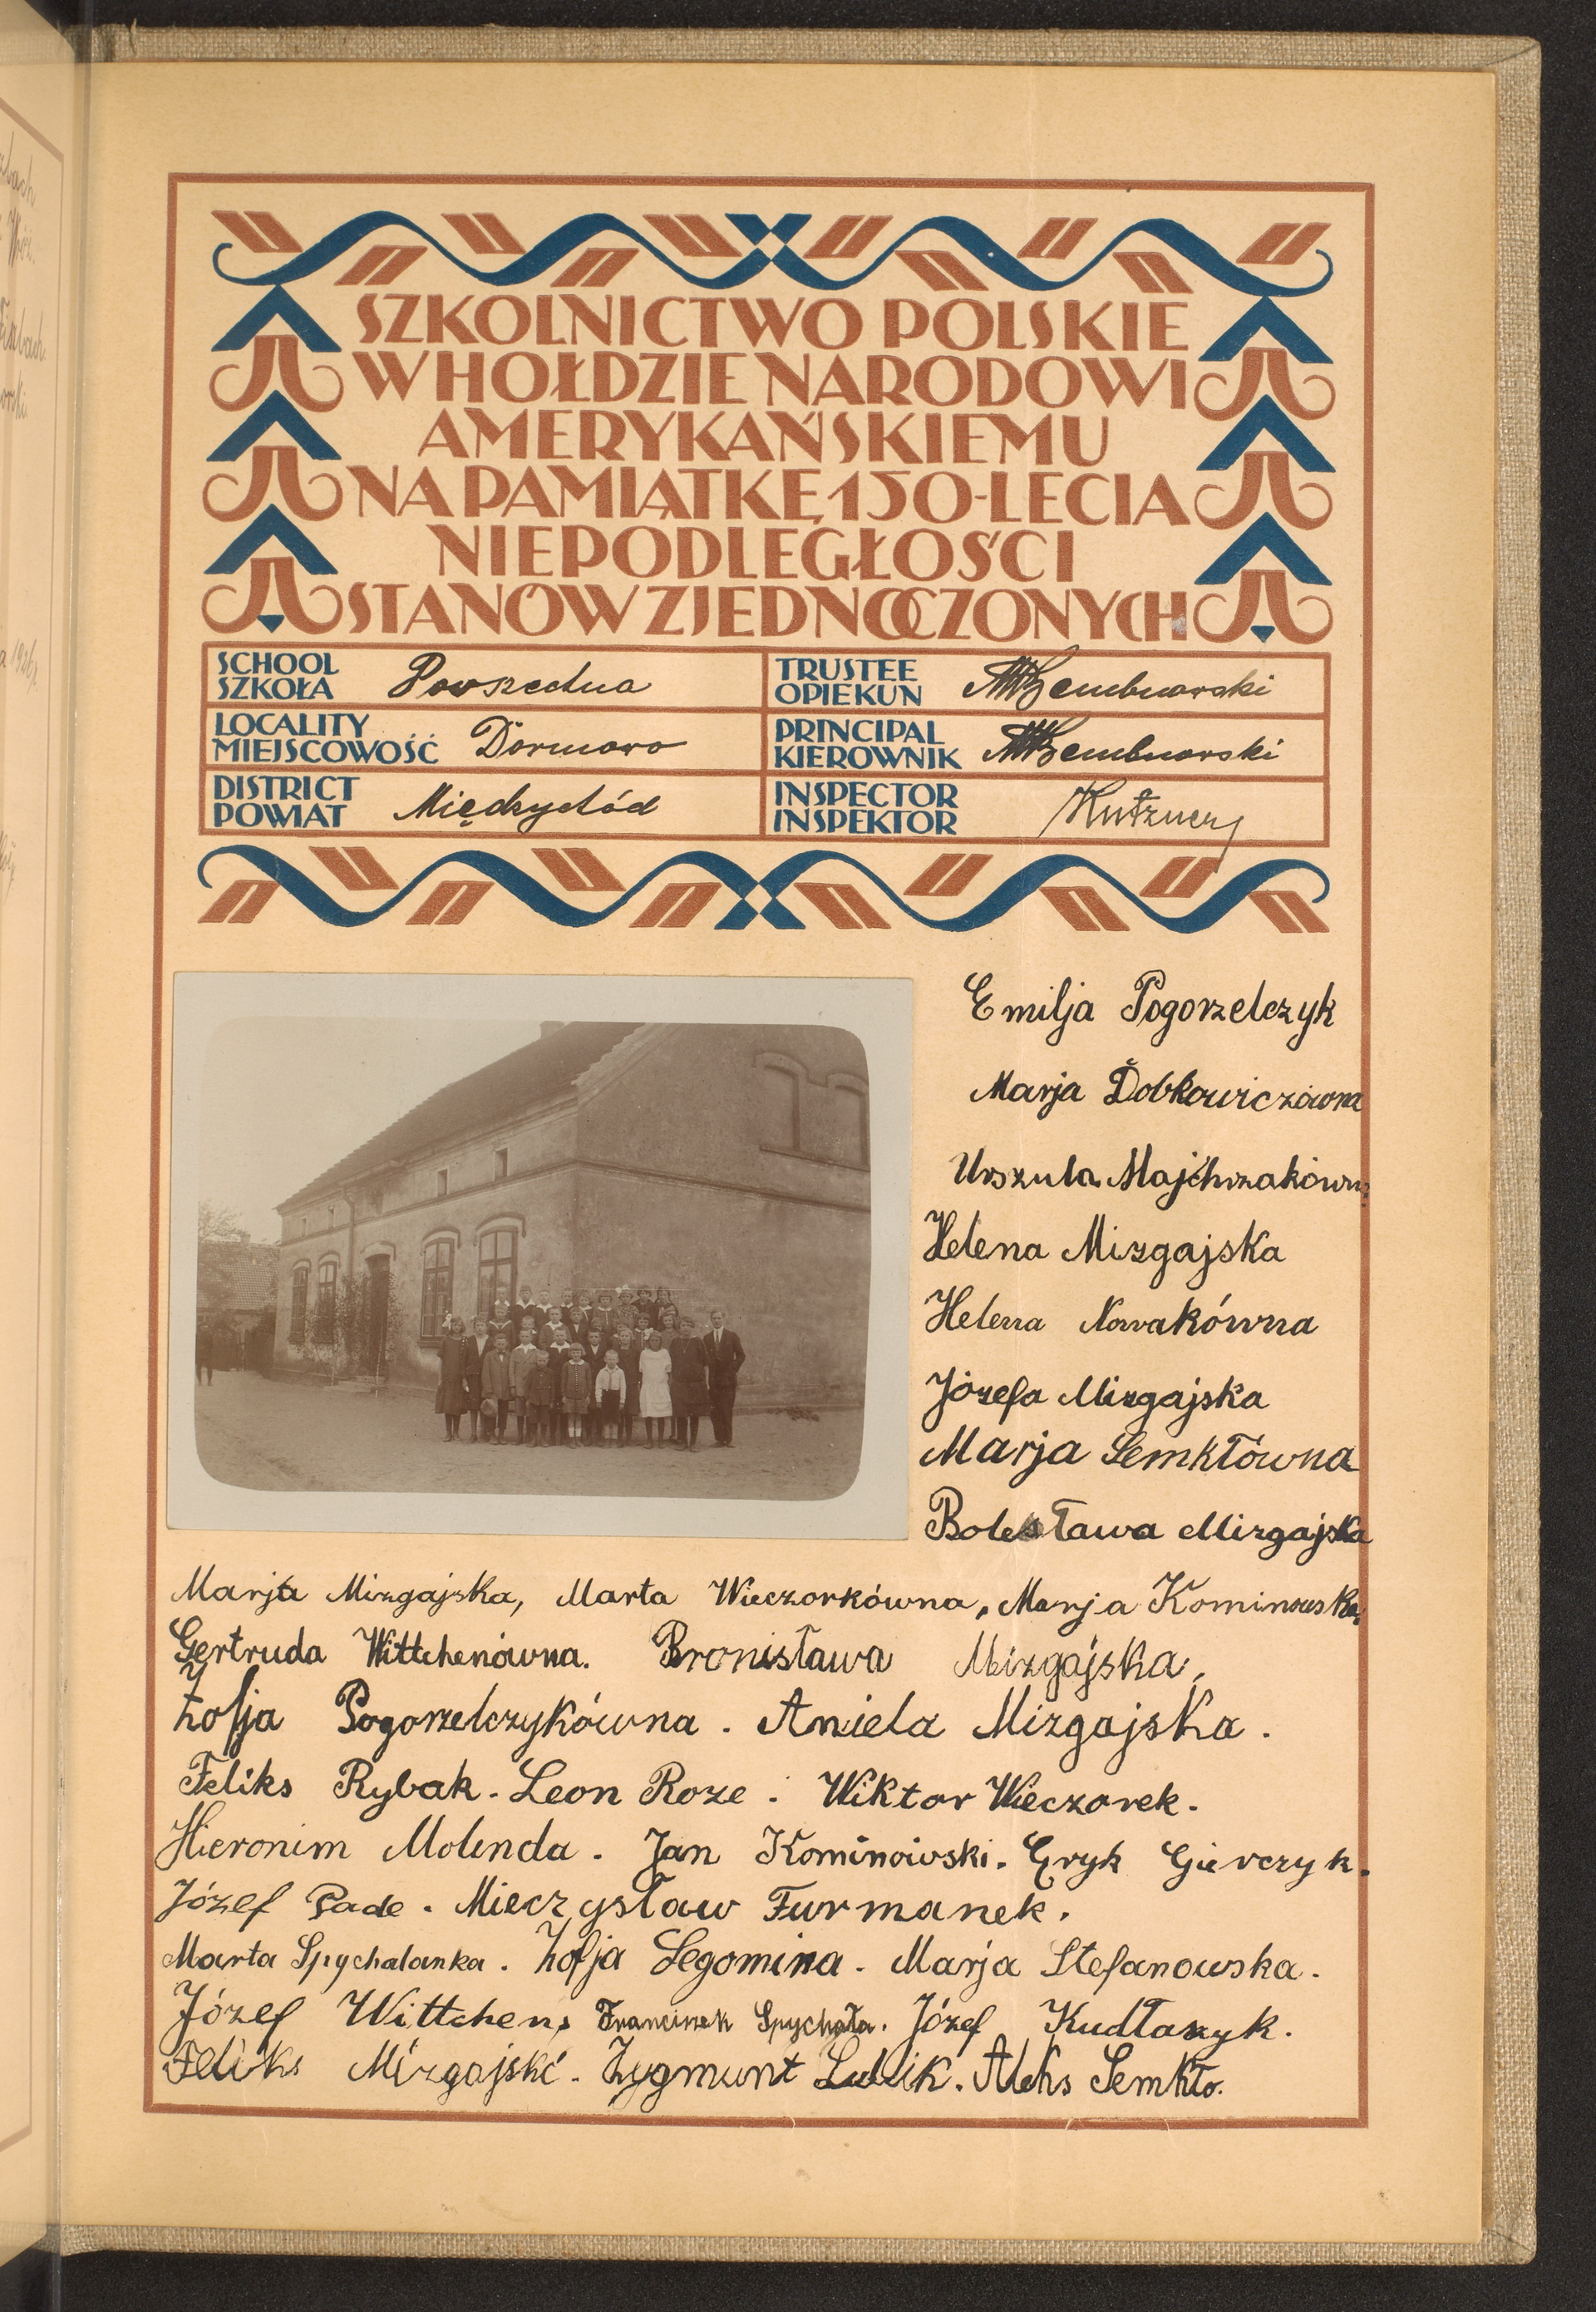 SZKOLNICTWO POLSKIE
W HOŁDZIE NARODOWI
AMERYKAŃSKIEMU
NA PAMIĄTKĘ 150-LECIA
NIEPODLEGŁOŚCI
STANÓW ZJEDNOCZONYCH
SCHOOL
SZKOŁA Powszechna
TRUSTEE
OPIEKUN
LOCALITY
MIEJSCOWOŚĆ Dormowo
PRINCIPAL
KIEROWNIK
DISTRICT
POWIAT Międzychód
INSPECTOR
INSPEKTOR
Emilja Pogorzelczyk
Marja Dobkowiczówna
Urszula Majchrzakówna
Helena Mizgajska
Helena Nowakówna
Józefa Mizgajska
Marja Semktówna
Bolesława Mizgajska
Marja Mizgajska, Marta Wieczorkówna, Marja Kominowska,
Gertruda Wittchenówna. Bronisława Mizgajska,
Zofja Pogorzelczykówna. Aniela Mizgajska.
Feliks Rybak. Leon Roze. Wiktor Wieczorek.
Hieronim Molenda. Jan Kominowski. Eryk Gierczyk.
Józef Pade. Mieczysław Furmanek.
Marta Spychalanka. Zofja Legomina. Marja Stefanowska.
Józef Wittchen, Franciszek Spychała. Józef Kudłaszyk.
Feliks Mizgajski. Zygmunt Aleks Semkto.